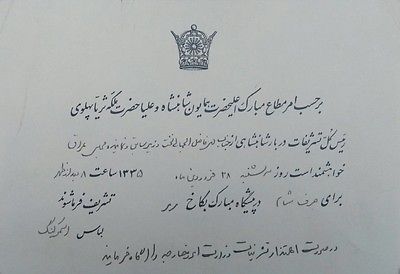 برحسب امر مطاع مبارک اعلیحضرت همایون شاهنشاه و علیاحضرت ملکه ثریا پهلوی
رئیس کل تشریفات دربار شاهنشاهی از جناب
خواهشمند است روز سه شنبه ۲۸ فروردین ماه ۱۳۳۵ ساعت ۸ بعد از ظهر
برای صرف شام در پیشگاه مبارک بکاخ تشریف فرما شوند
لباس اسموکینگ
در صورت اعتذار تشریفات وزارت امور خارجه را آگاه فرمایند